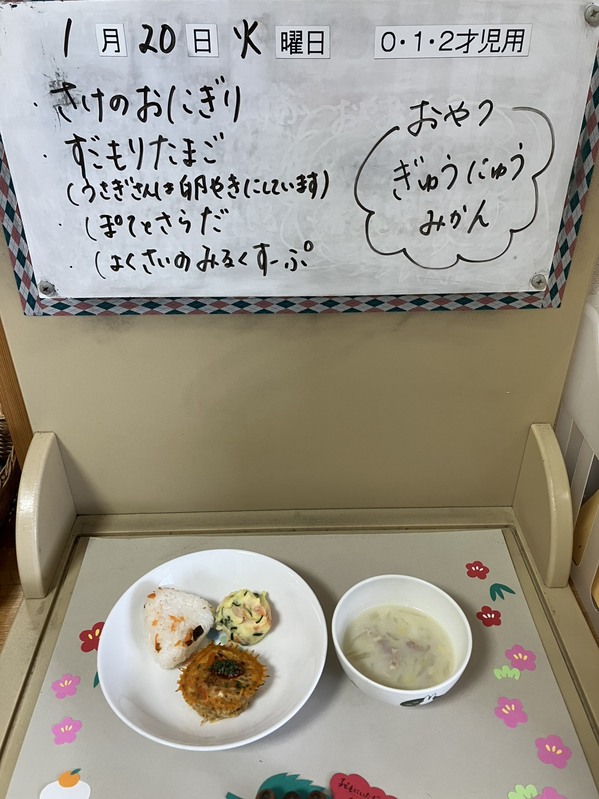 1月20日 火曜日 0・1・2才児用
・さけのおにぎり
・すごもりたまご
(うさぎさんは卵やきにしています)
・ぽてとさらだ
・はくさいのみるくすーぷ
おやつ
ぎゅうにゅう
みかん